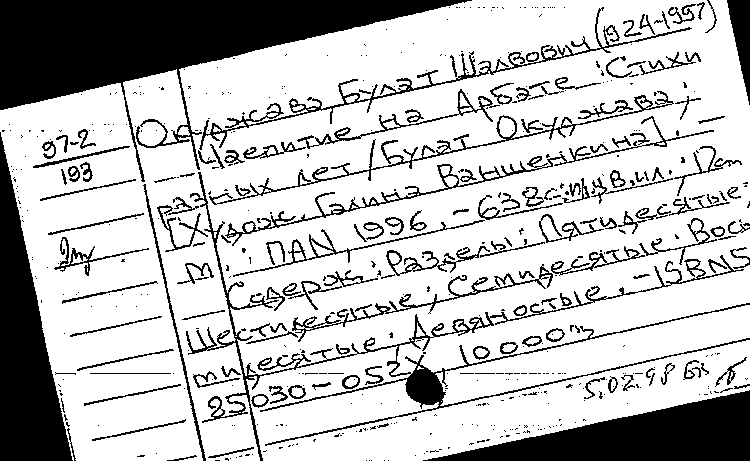 Окуджава, Булат Шалвович (1924-1997)
97-2
193
Чаепитие на Арбате : Стихи
разных лет / Булат Окуджава ;
[Худож. Галина Ваншенкина]. -
М. : ПАN, 1996. - 638 с. : ил.;
Содерж.: Разделы: Пятидесятые;
Шестидесятые; Семидесятые. Вось
мидесятые. Девяностые. - ISBN 5
85030-052X, 10000
5.02.98